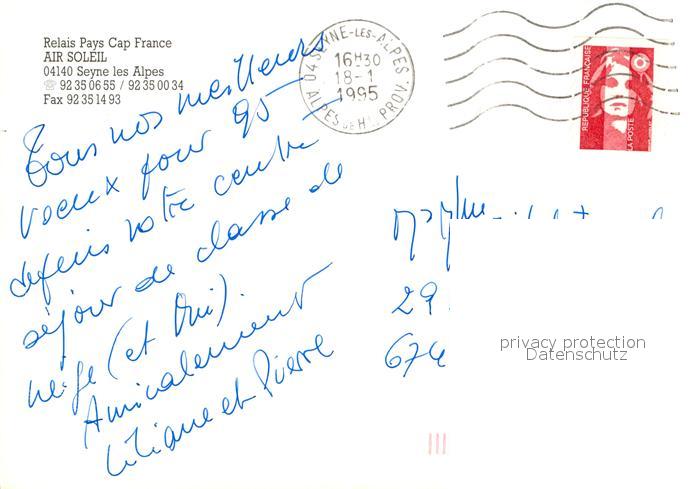 Relais Pays Cap France
AIR SOLEIL
04140 Seyne les Alpes
☏ 92 35 06 55 / 92 35 00 34
Fax 92 35 14 93
04 SEYNE-LES-ALPES
16H30
18-1
1995
ALPES DE HTE PROV.
REPUBLIQUE FRANÇAISE
LA POSTE
Tous nos meilleurs
voeux pour 95
depuis notre centre
séjour de classe de
neige (et Oui).
Amicalement
Liliane et Pierre
29
674
privacy protection
Datenschutz